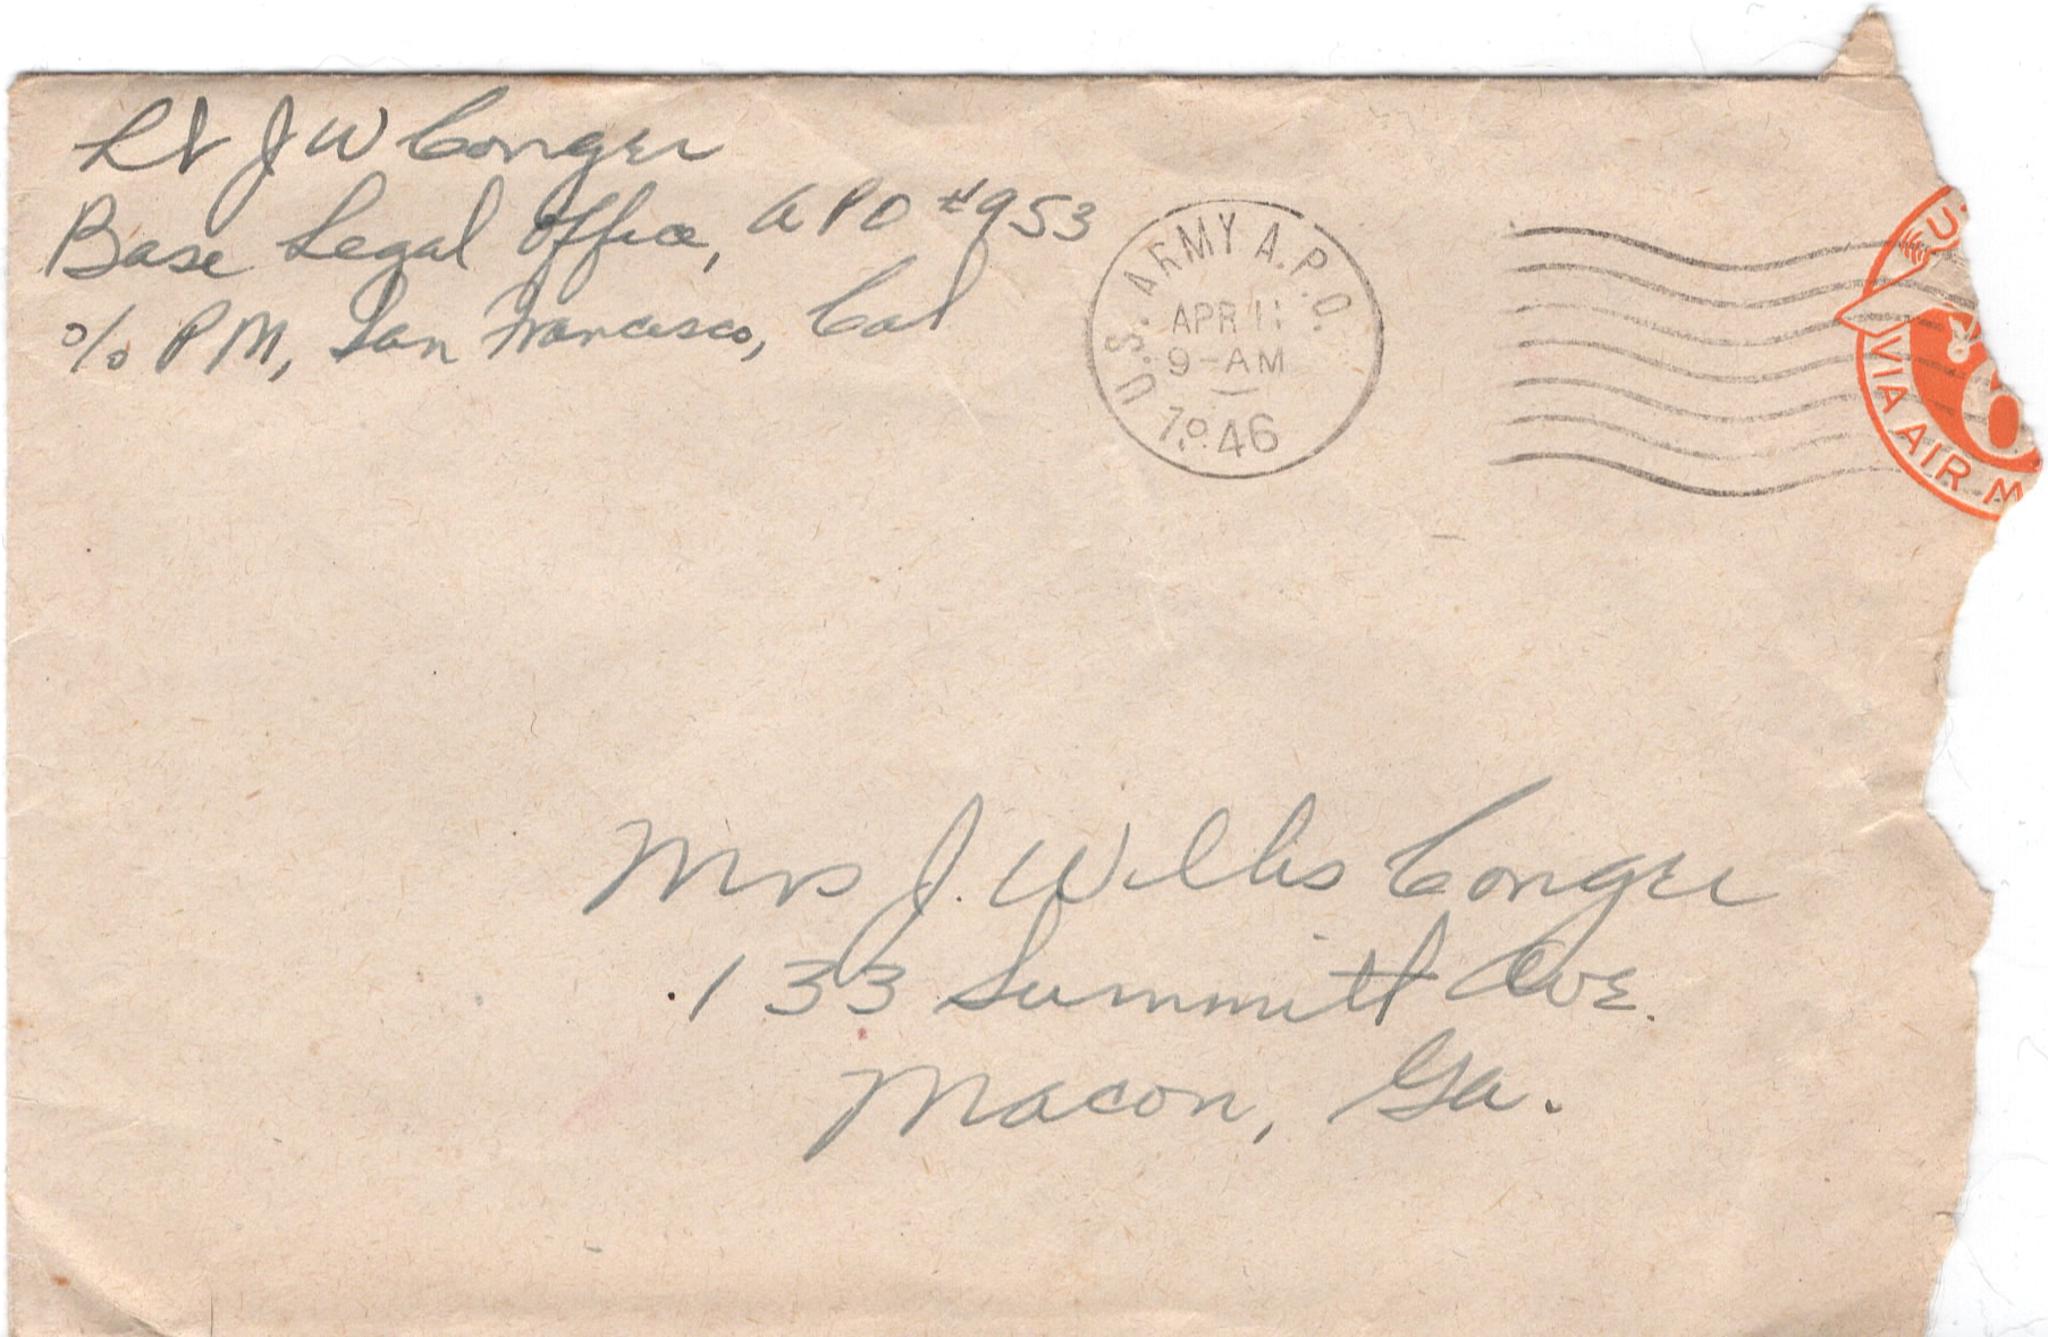 Lt J W Conger
Base Legal Office, APO #953
c/o PM, San Francisco, Cal
U.S. ARMY A.P.O.
APR 11
9-AM
1946
VIA AIR M
Mrs J. Willis Conger
133 Summitt Ave.
Macon, Ga.